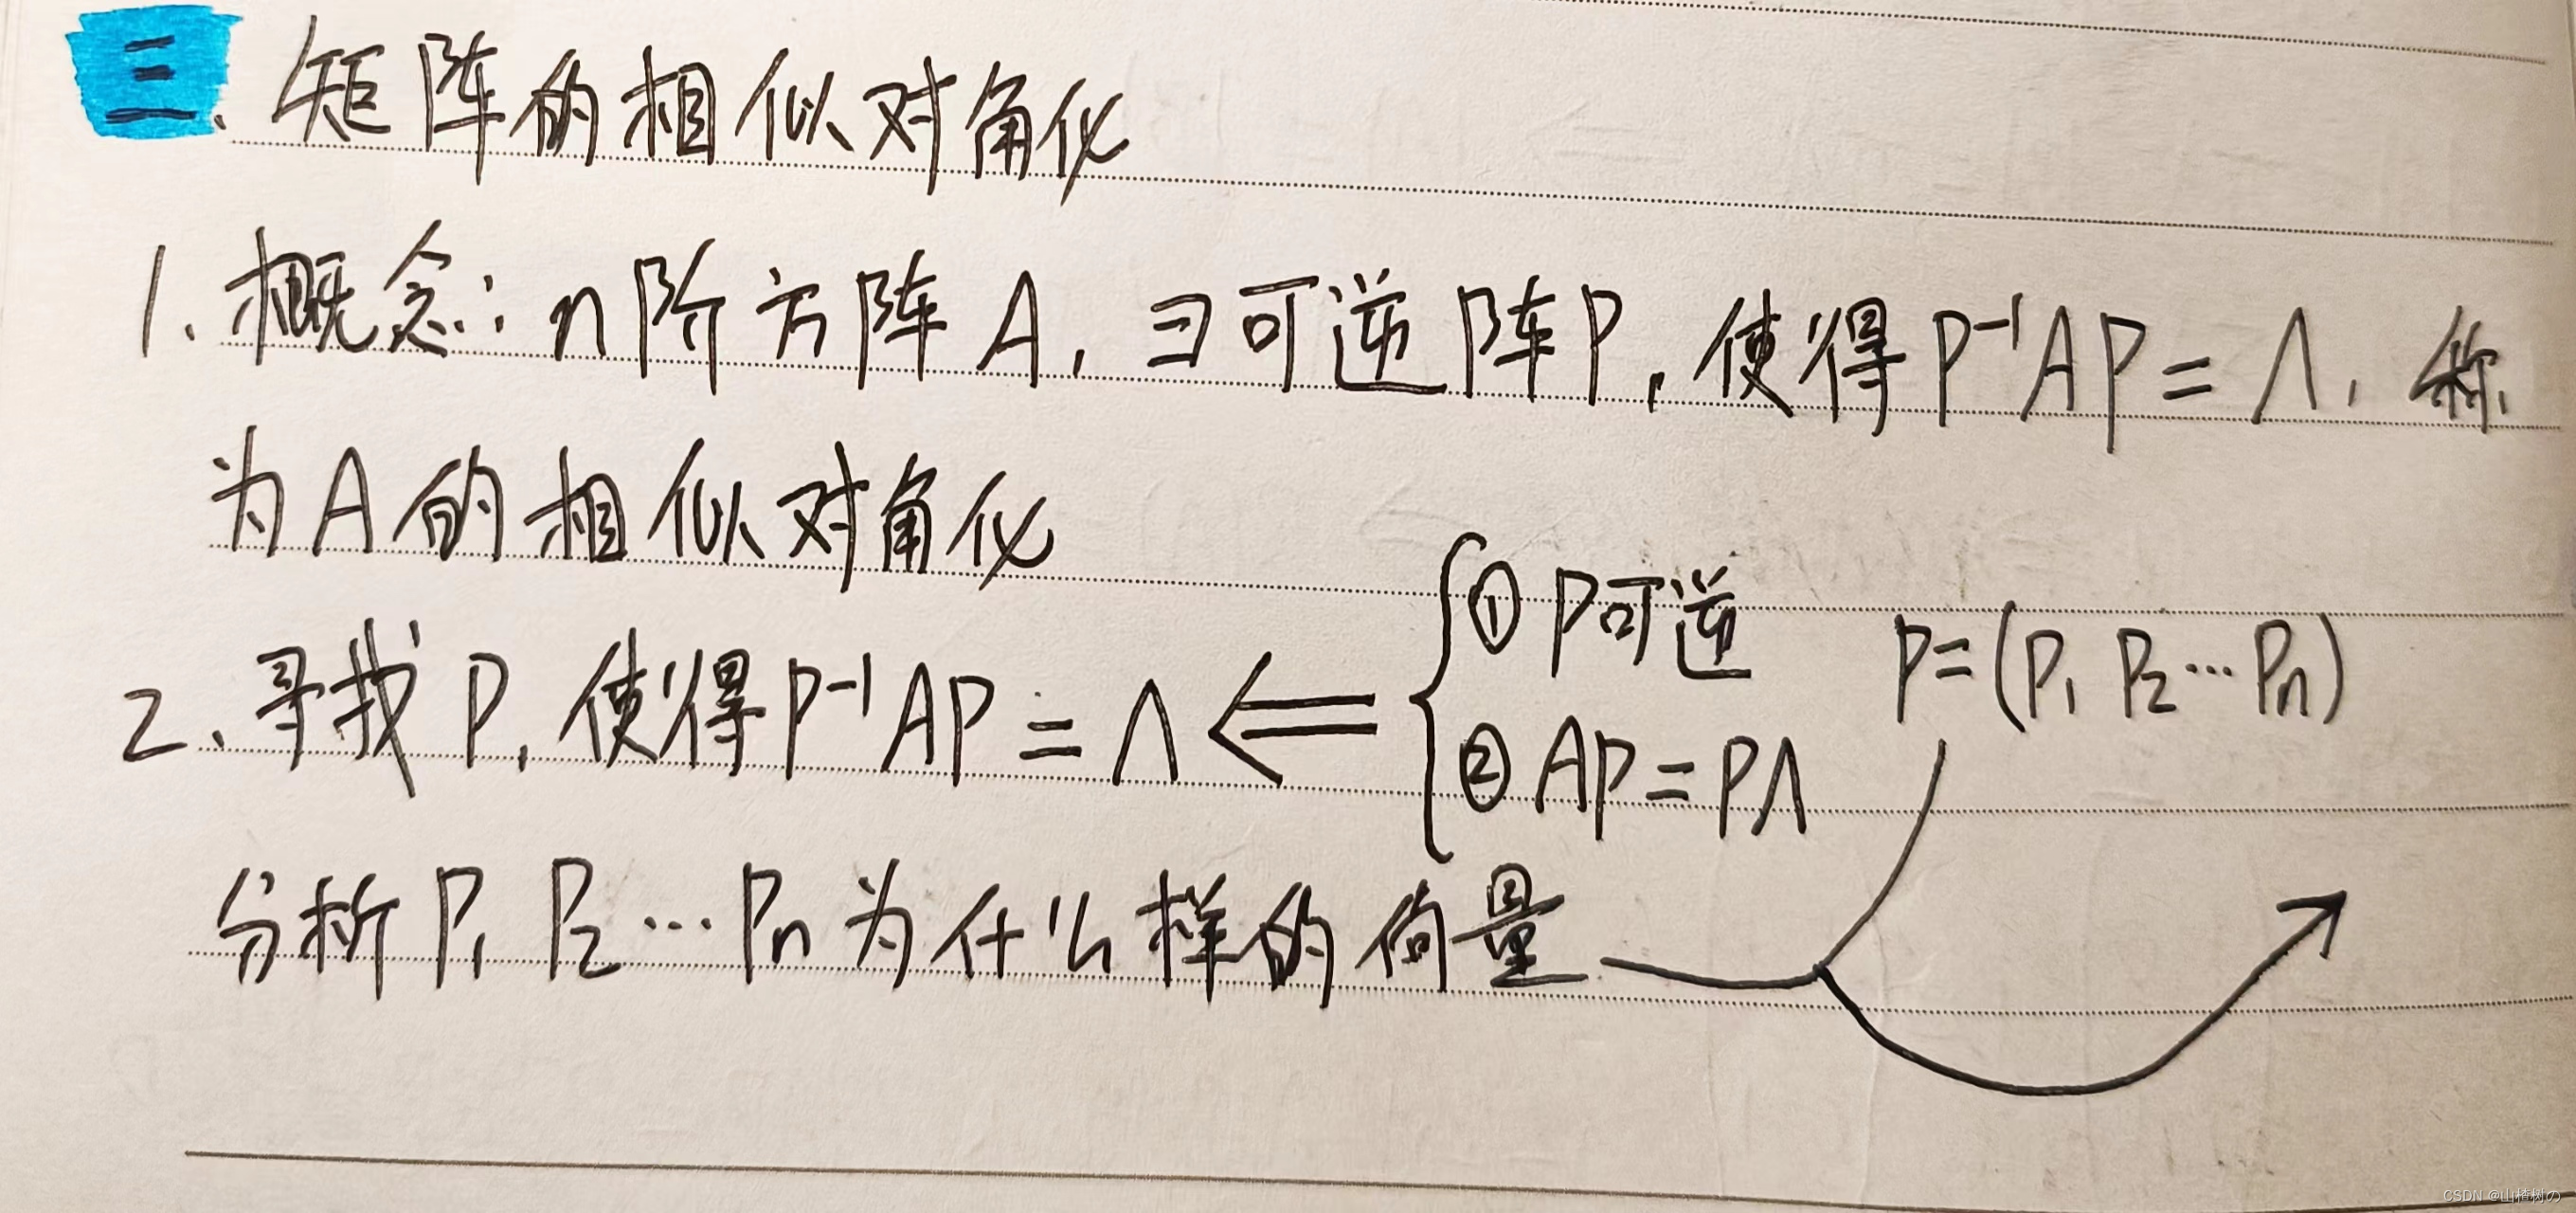 三、矩阵的相似对角化
1. 概念: n阶方阵A, ∃可逆阵P, 使得P⁻¹AP=Λ, 称
为A的相似对角化
2、寻找P, 使得P⁻¹AP=Λ ⇐ { ①P可逆
②AP=PΛ
P=(P₁ P₂ ⋯ Pn)
分析P₁ P₂ ⋯ Pn为什么样的向量
CSDN @山楂树の